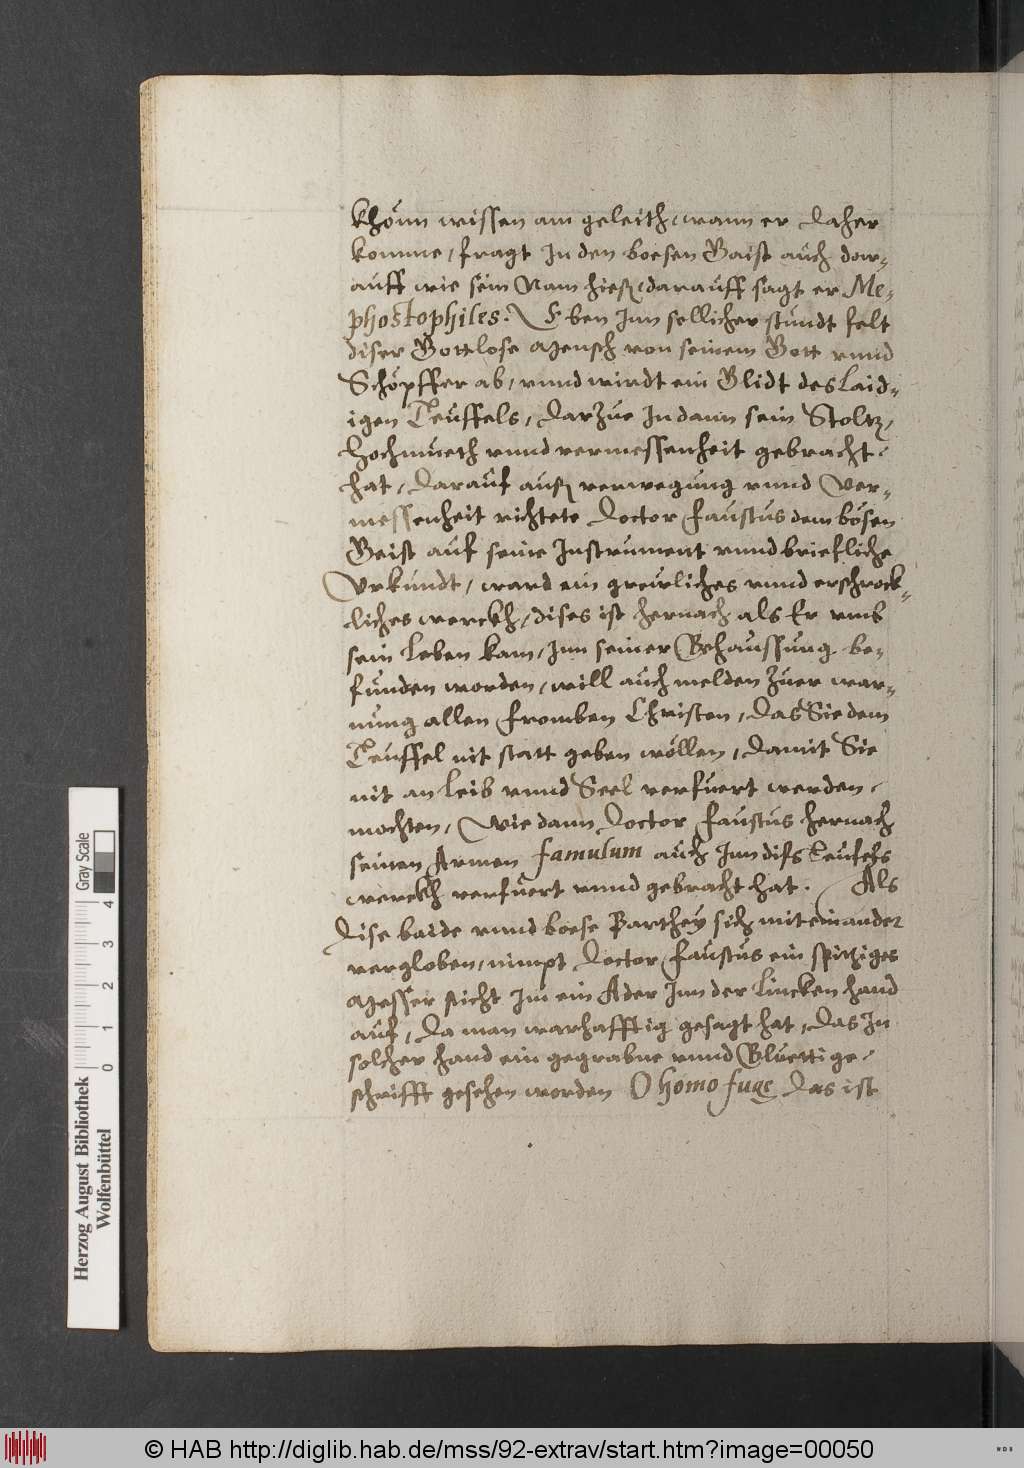 khönn wissen am geleith, wann er daher
komme, fragt In den boesen Gaist auch dar-
auff wie sein Nam hieß, darauff sagt er Me-
phostophiles. Eben Inn sellicher stundt felt
diser Gottlose Mensch von seinem Gott vnnd
Schöpffer ab, vnnd wirdt ein Glidt des Laid-
igen Teuffels, darzue In dann sein Stoltz,
Hochmueth vnnd vermessenheit gebracht
hat, darauf auß verwegung vnnd Ver-
messenheit richtete Doctor Faustus dem bösen
Geist auf seine Instrument vnnd briefliche
Vrkundt, ward ein greuliches vnnd erschrock-
liches werckh, dises ist hernach als Er vmb
sein Leben kam, Inn seiner Behaussung be-
funden worden, will auch melden Zuer war-
nung allen fromben Christen, das Sie dem
Teuffel nit statt geben wöllen, damit Sie
nit an Leib vnnd Seel verfuert werden
mochten, wie dann Doctor Faustus hernach
seinen Armen famulum auch Inn diß Teufels
werckh verfuert vnnd gebracht hat. Als
dise baide vnnd boese Parthey sich miteinander
vergloben, nimpt Doctor Faustus ein spitziges
Messer sticht Im ein Ader Inn der Lincken hand
auf, da man warhafftig gesagt hat, das In
solcher hand ein gegrabne vnnd Bluettige
schrifft gesehen worden O homo fuge das ist
Herzog August Bibliothek
Wolfenbüttel
Gray Scale
0 1 2 3 4
© HAB http://diglib.hab.de/mss/92-extrav/start.htm?image=00050